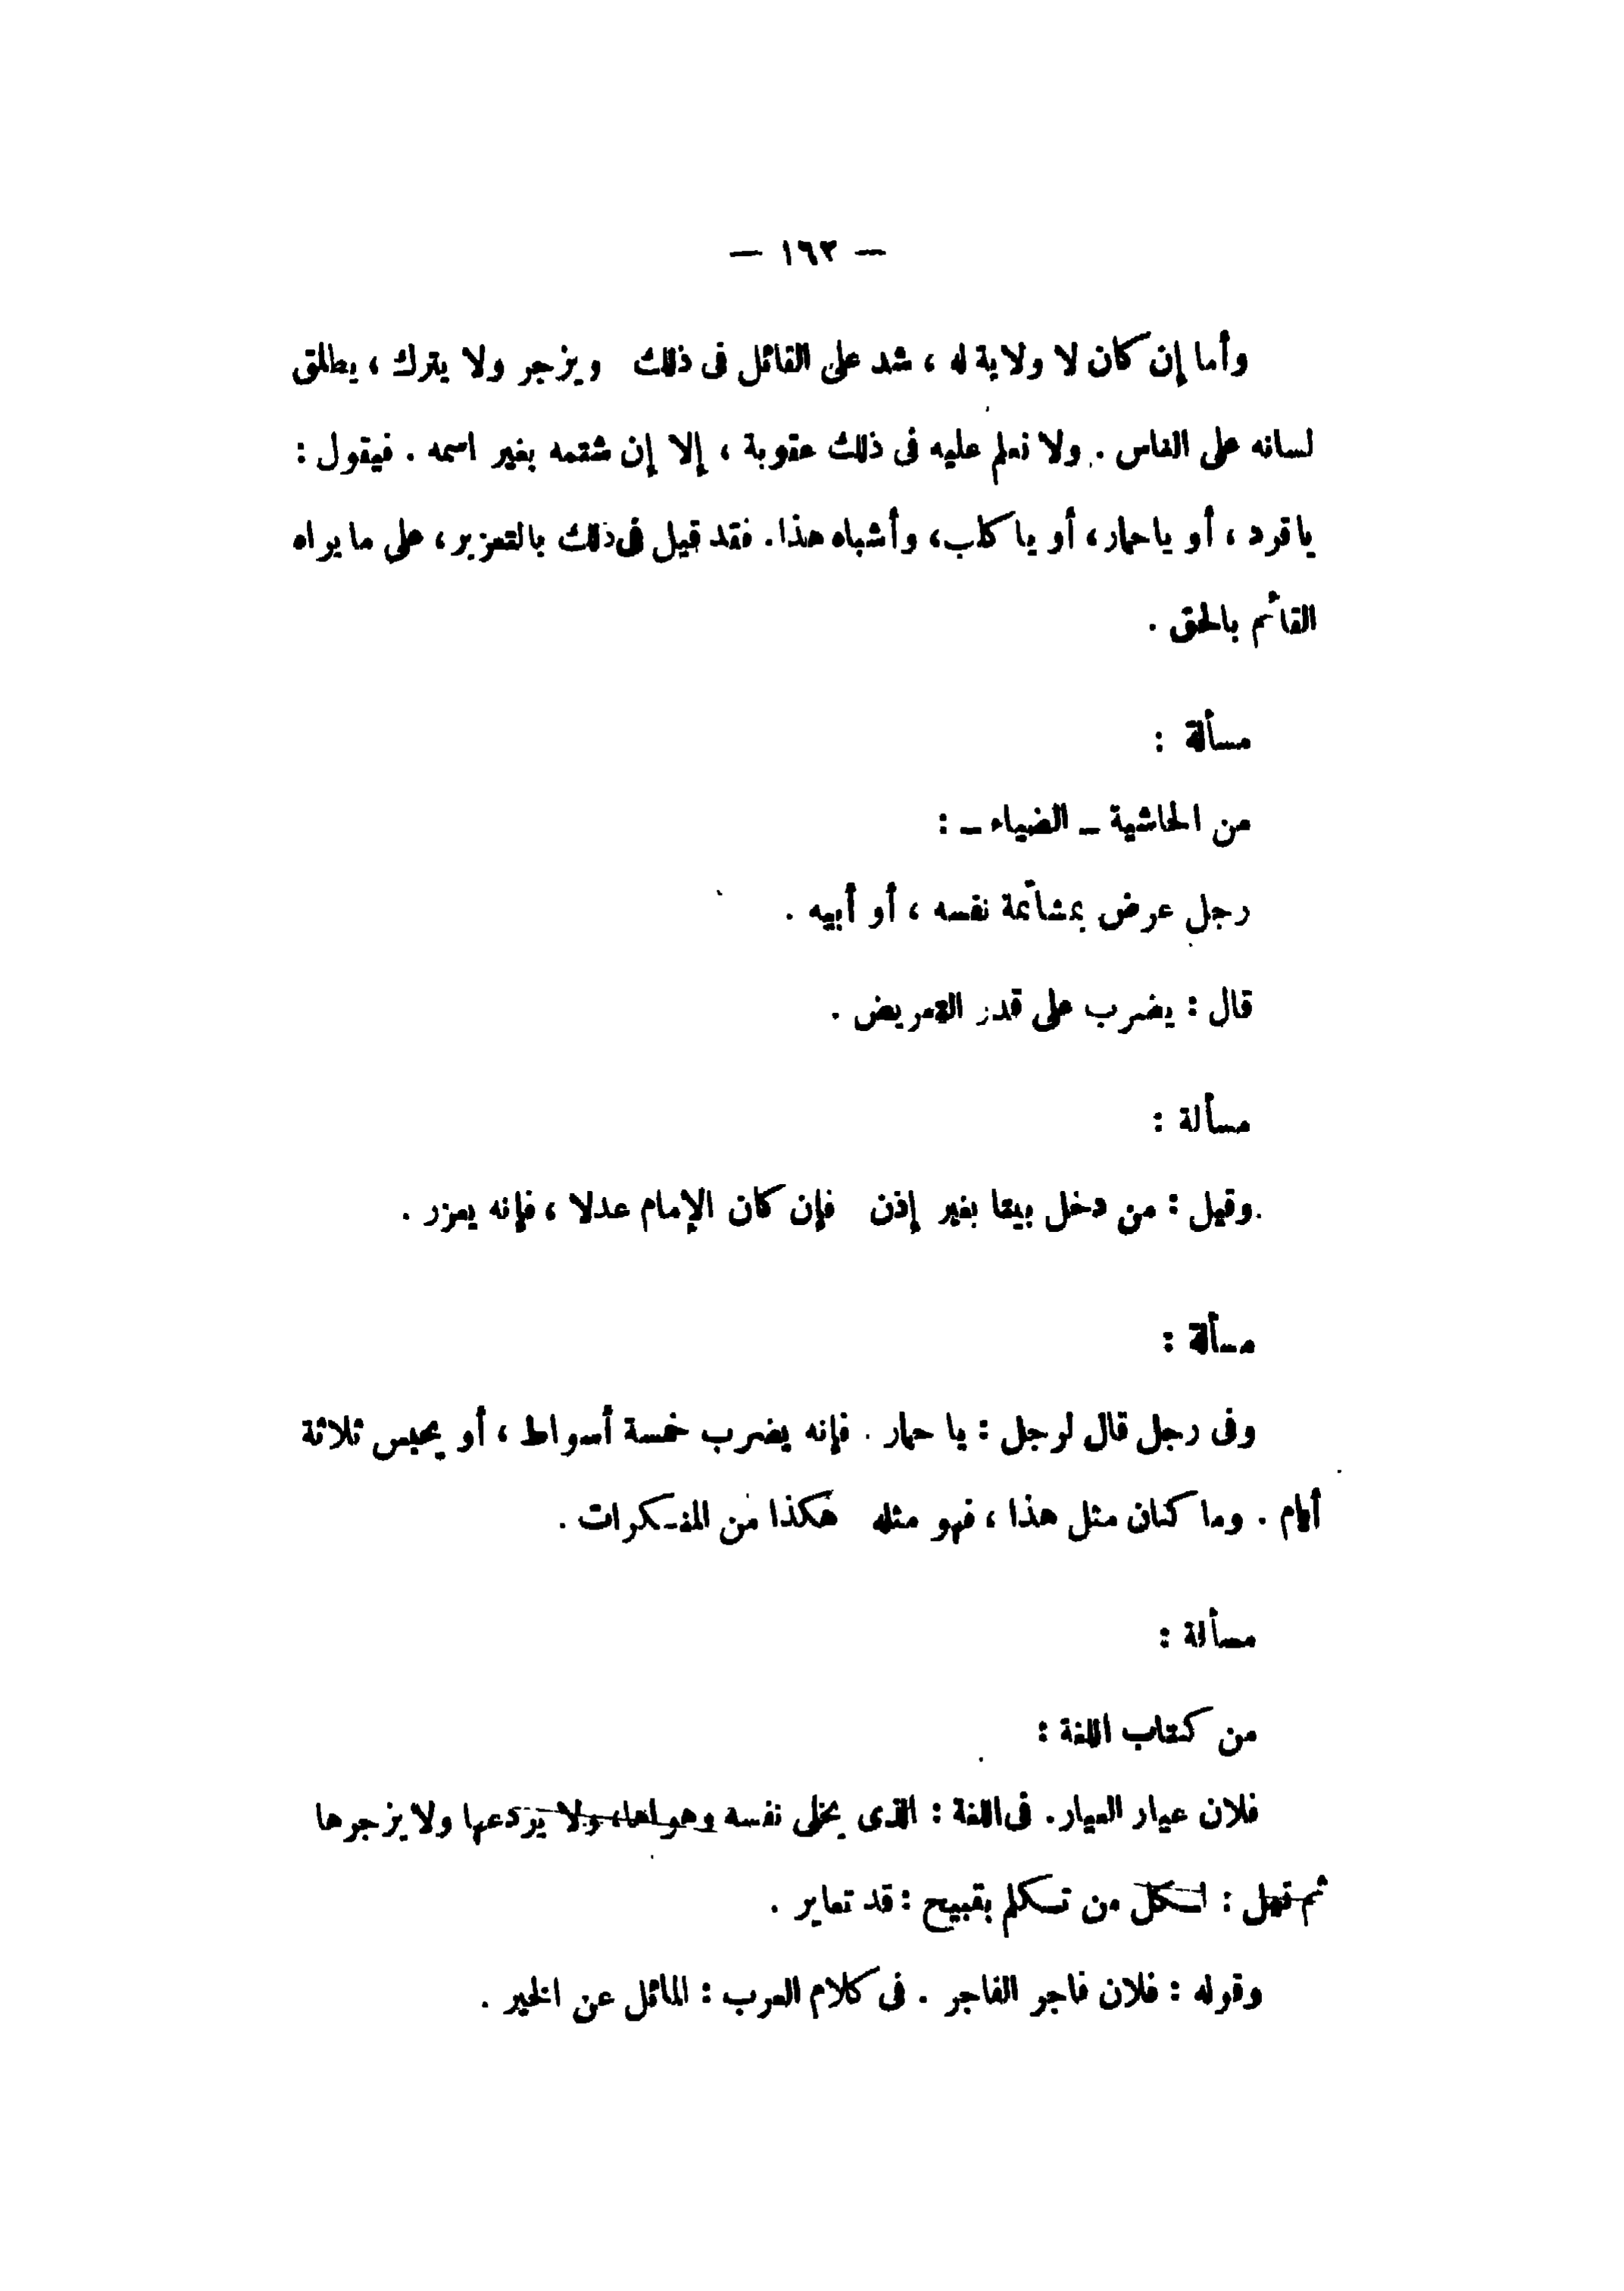 — ١٦٣ —
وأما إن كان لا ولاية له ، شد على القائل فى ذلك ويزجر ولا يترك ، يطلق
لسانه على الناس . ولا نعلم عليه فى ذلك عقوبة ، إلا إن شتمه بغير اسمه . فيقول :
ياقرد ، أو ياحمار، أو ياكلب، وأشباه هذا. فقد قيل فى ذلك بالتعزير، على مايراه
القائم بالحق .
مسألة :
من الحاشية – الضياء – :
رجل عرض بمشاتمة نفسه ، أو أبيه .
قال : يضرب على قدر التعريض .
مسألة :
وقيل : من دخل بيتا بغير إذن فإن كان الإمام عدلا ، فإنه يعزر .
مسألة :
وفى رجل قال لرجل : يا حمار . فإنه يضرب خمسة أسواط ، أو يحبس ثلاثة
أيام . وما كان مثل هذا ، فهو مثله هكذا من المنكرات .
مسألة :
من كتاب اللغة :
فلان عيار العيار. فى اللغة : الذى يخلى نفسه وهواها، ولا يردعها ولايزجرها
ثم قيل : لكل من تكلم بقبيح : قد تعاير .
وقوله : فلان فاجر الفاجر . فى كلام العرب : المائل عن الخير .